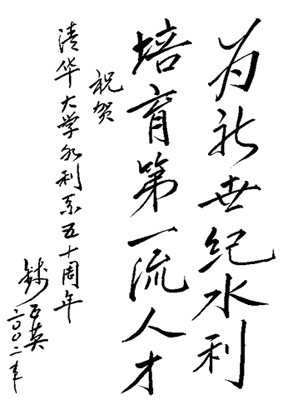 为新世纪水利
培育第一流人才
祝贺
清华大学水利系五十周年
钱正英
二〇〇二年